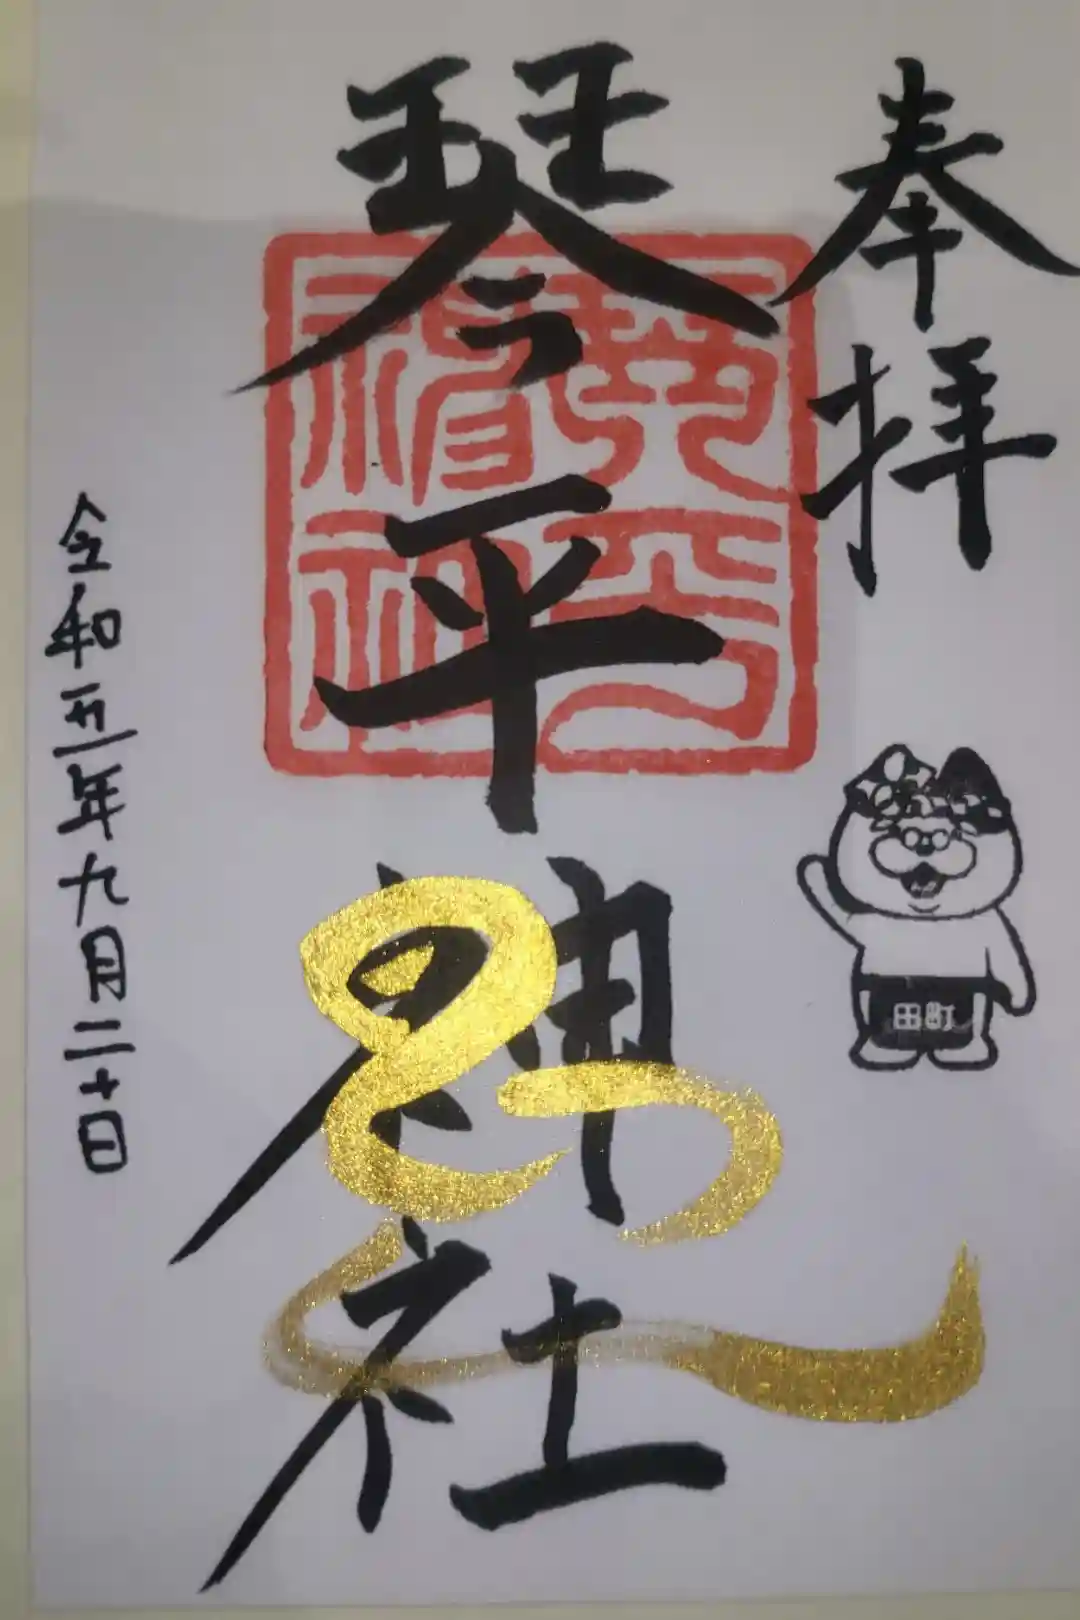 奉拝
琴平神社
琴平神社
令和五年九月二十日
田町